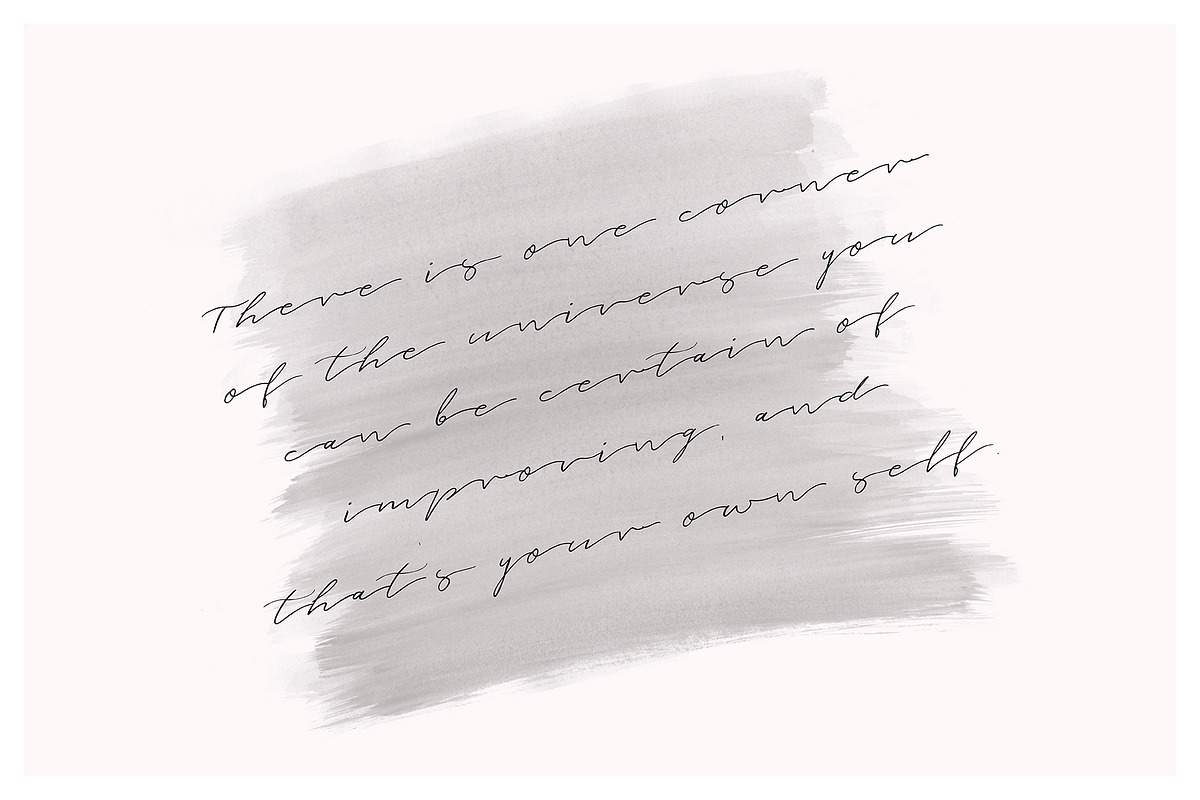 There is one corner
of the universe you
can be certain of
improving, and
that's your own self.